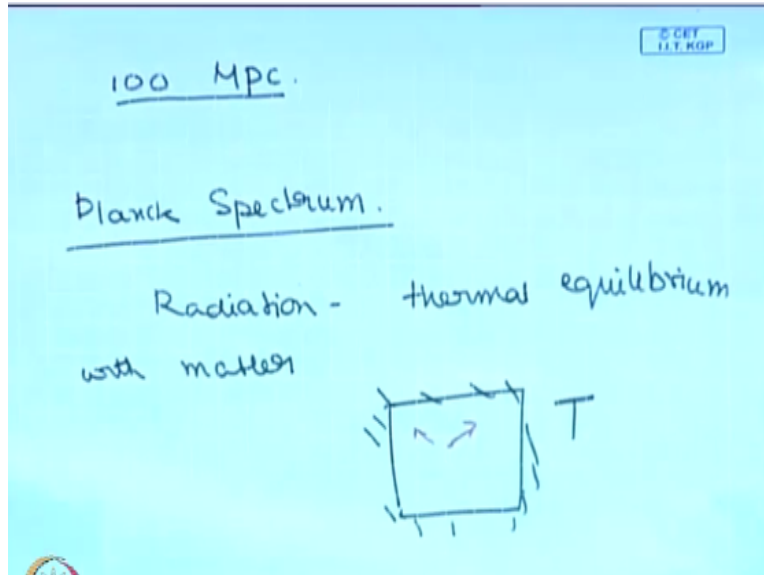 © CET
I.I.T. KGP
100 Mpc.
Planck Spectrum.
Radiation - thermal equilibrium
with matter
T